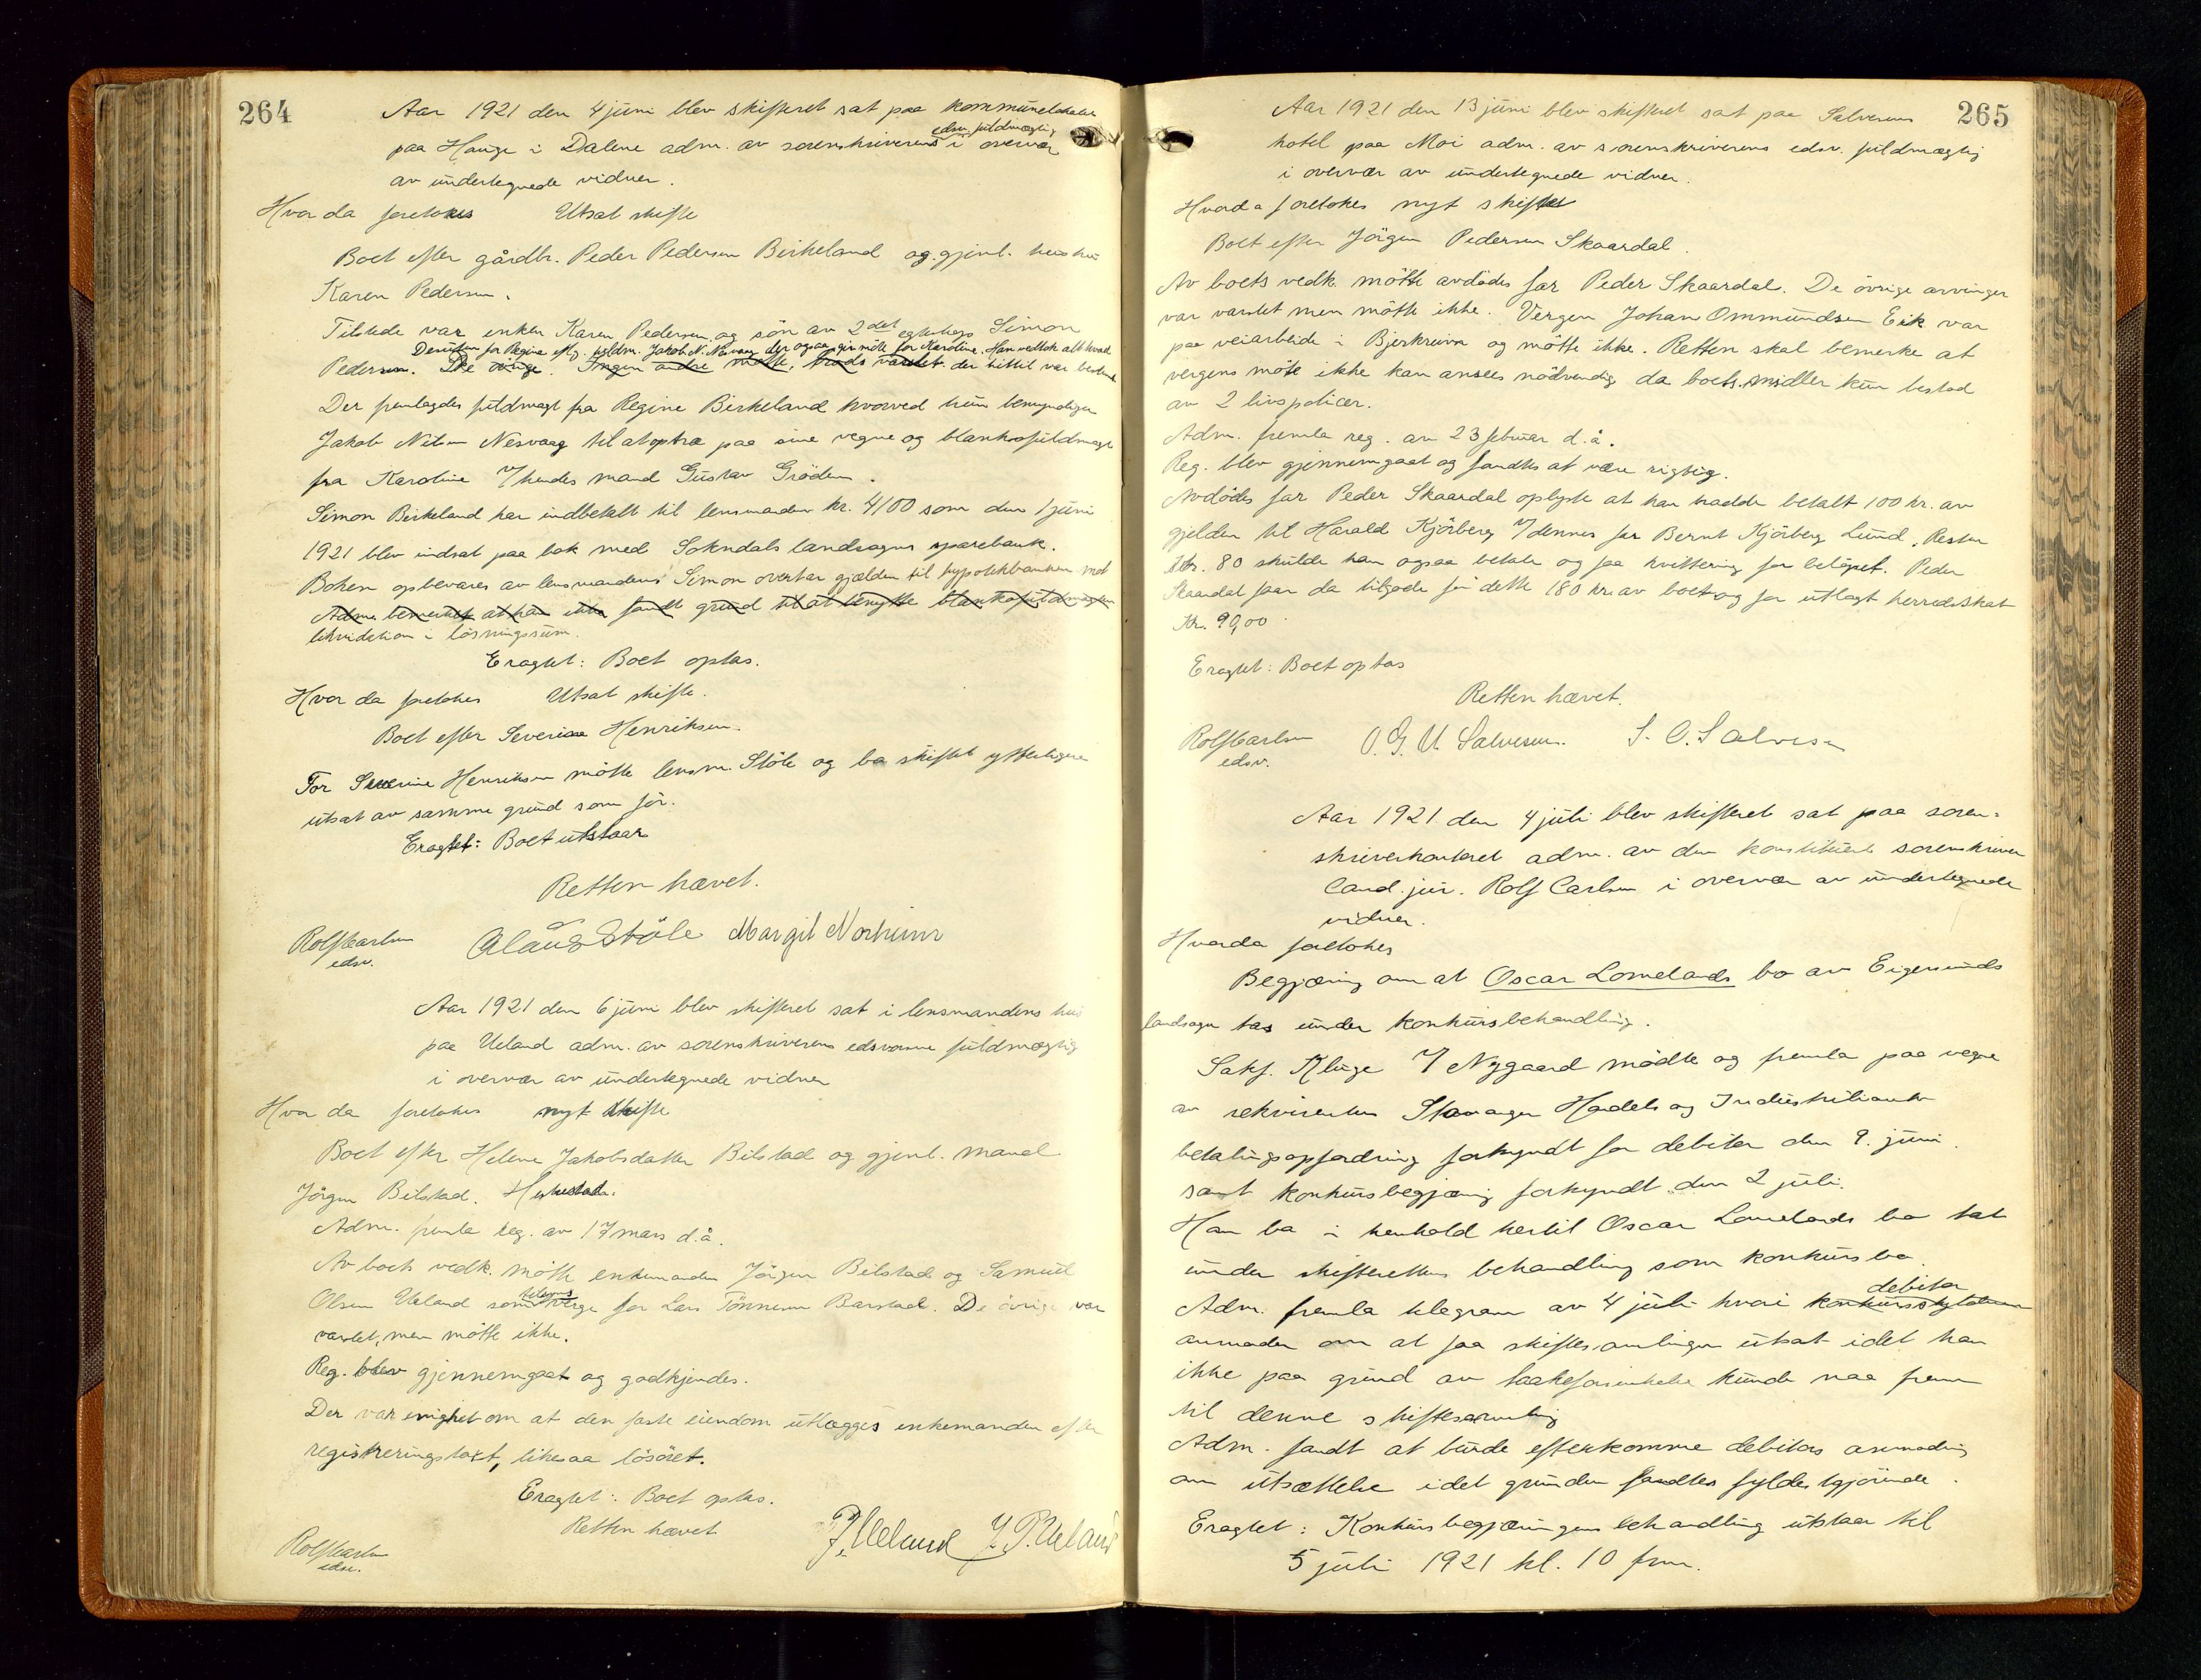 264
Aar 1921 den 4 juni blev skifteret sat paa kommunelokalet
edsv. fuldmægtig
paa Hauge i Dalene adm. av sorenskriverens i overvær
av undertegnede vidner.
Hvor da foretokes Utsat skifte
Boet efter gårdbr. Peder Pedersen Birkeland og gjenl. hustru
Karen Pedersen.
Tilstede var enken Karen Pedersen og søn av 2det egteskap Simon
Desuten for Regine efter fuldm. Jakob N. Nesvaag der ogsaa gir møte for Karoline. Han vedtok alt hvad
Pedersen. De øvrige. Ingen andre møtte, trods varslet. der hittil var bestemt
Der fremlagdes fuldmagt fra Regine Birkeland hvorved hun bemyndiger
Jakob Nilsen Nesvaag til at optræ paa sine vegne og blankofuldmagt
fra Karoline v/ hendes mand Gustav Grødem.
Simon Birkeland har indbetalt til lensmanden kr. 4100 som den 1 juni
1921 blev indsat paa bok med Sokndals landsogns sparebank.
Boken opbevares av lensmanden. Simon overtar gjælden til hypotekbanken mot
Adm. bemerket at han ikke fandt grund til at benytte blankofuldmagten
likvidation i løsningssum.
Eragtet: Boet optas.
Hvor da foretokes Utsat skifte.
Boet efter Severine Henriksen.
For Severine Henriksen møtte lensm. Støle og ba skiftet ytterligere
utsat av samme grund som før.
Eragtet: Boet utstaar
Retten hævet.
Rolf Carlsen edsv. Claus Støle Margit Norheim
Aar 1921 den 6 juni blev skifteret sat i lensmandens hus
paa Ueland adm. av sorenskriverens edsvorne fuldmægtig
i overvær av undertegnede vidner
Hvor da foretokes nyt skifte
Boet efter Helene Jakobsdatter Bilstad og gjenl. mand
Jørgen Bilstad. Heskestad.
Adm. fremla reg. av 17 mars d.å.
Av boets vedk. møtte enkemanden Jørgen Bilstad og Samuel
Olsen Ueland som verge for Lars Tønnesen Barstad. De øvrige var
varslet, men møtte ikke.
Reg. blev gjennemgaat og godkjendes.
Der var enighet om at den faste eiendom utlægges enkemanden efter
registreringstakst, likesaa løsøret.
Eragtet: Boet optas.
Retten hævet
Rolf Carlsen edsv. P. Ueland J. P. Ueland
265
Aar 1921 den 13 juni blev skifteret sat paa Salvesens
hotel paa Moi adm. av sorenskriverens edsv. fuldmægtig
i overvær av undertegnede vidner.
Hvorda foretokes nyt skifte
Boet efter Jørgen Pedersen Skaardal.
Av boets vedk. møtte avdødes far Peder Skaardal. De øvrige arvinger
var varslet men møtte ikke. Vergen Johan Ommundsen Eik var
paa veiarbeide i Bjerkreim og møtte ikke. Retten skal bemerke at
vergens møte ikke kan ansees nødvendig da boets midler kun bestod
av 2 livspolicer.
Adm. fremla reg. av 23 februar d.å.
Reg. blev gjennemgaat og fandtes at være rigtig.
Avdødes far Peder Skaardal oplyste at han hadde betalt 100 kr. av
gjelden til Harald Kjörberg v/ dennes far Bernt Kjörberg Lund. Resten
Kr. 80 skulde han ogsaa betale og faa kvittering for beløpet. Peder
Skaardal faar da tilgode for dette 180 kr. av boet og for utlagt herredsskat
Kr. 90,00
Eragtet: Boet optas
Retten hævet.
Rolf Carlsen edsv. O. G. U. Salvesen. S. O. Salvesen
Aar 1921 den 4 juli blev skifteret sat paa soren-
skriverkontoret adm. av den konstituerte sorenskriver
Cand. jur. Rolf Carlsen i overvær av undertegnede
vidner.
Hvorda foretokes
Begjæring om at Oscar Lomelands bo av Eigersunds
landsogn tas under konkursbehandling.
Sakf. Kluge v/ Nygaard mødte og fremla paa vegne
av rekvirenten Stavanger Handels og Industribank
betalingsopfordring forkyndt for debitor den 9. juni.
samt konkursbegjæring forkyndt den 2 juli.
Han ba i henhold hertil Oscar Lomelands bo tat
under skifterettens behandling som konkursbo.
debitor
Adm. fremla telegram av 4 juli hvori konkursskyldneren
anmoder om at faa skiftesamlingen utsat idet han
ikke paa grund av taakeforsinkelse kunde naa frem
til denne skiftesamling
Adm. fandt at burde efterkomme debitors anmodning
om utsættelse idet grunden fandtes fyldestgjørende.
Eragtet: Konkursbegjæringens behandling utstaar til
5 juli 1921 kl. 10 frm.